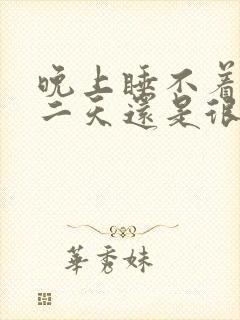 晚上睡不着
二天還是很
華秀妹